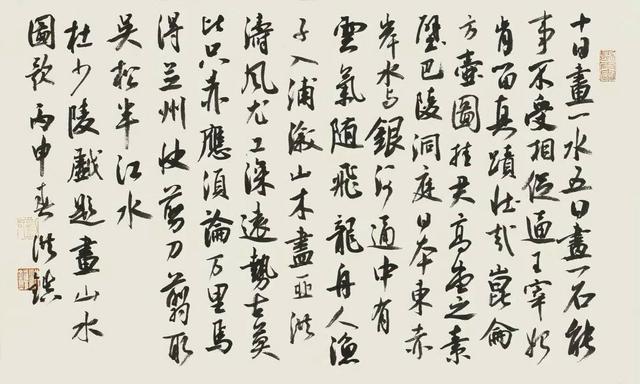 十日畫一水五日畫一石能
事不受相促逼王宰始
肯留真蹟壯哉崑崙
方壺圖挂君高堂之素
壁巴陵洞庭日本東赤
岸水与銀河通中有
雲氣随飛龍舟人漁
子入浦漵山木盡亞洪
濤風尤工深遠勢古莫
比只赤應須論万里焉
得并州快剪刀翦取
吳松半江水
杜少陵戲題畫山水
圖歌丙申春